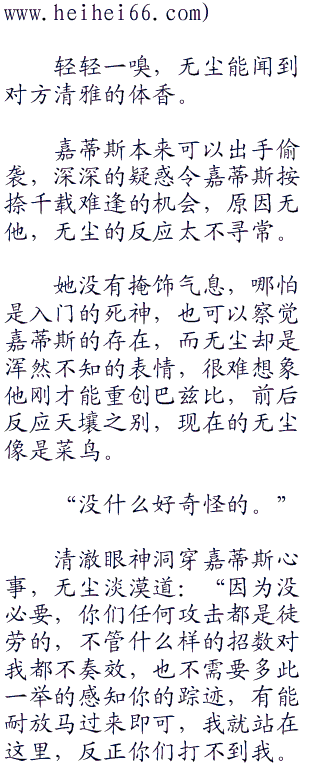 www.heihei66.com)
轻轻一嗅，无尘能闻到
对方清雅的体香。
嘉蒂斯本来可以出手偷
袭，深深的疑惑令嘉蒂斯按
捺千载难逢的机会，原因无
他，无尘的反应太不寻常。
她没有掩饰气息，哪怕
是入门的死神，也可以察觉
嘉蒂斯的存在，而无尘却是
浑然不知的表情，很难想象
他刚才能重创巴兹比，前后
反应天壤之别，现在的无尘
像是菜鸟。
“没什么好奇怪的。”
清澈眼神洞穿嘉蒂斯心
事，无尘淡漠道：“因为没
必要，你们任何攻击都是徒
劳的，不管什么样的招数对
我都不奏效，也不需要多此
一举的感知你的踪迹，有能
耐放马过来即可，我就站在
这里，反正你们打不到我。